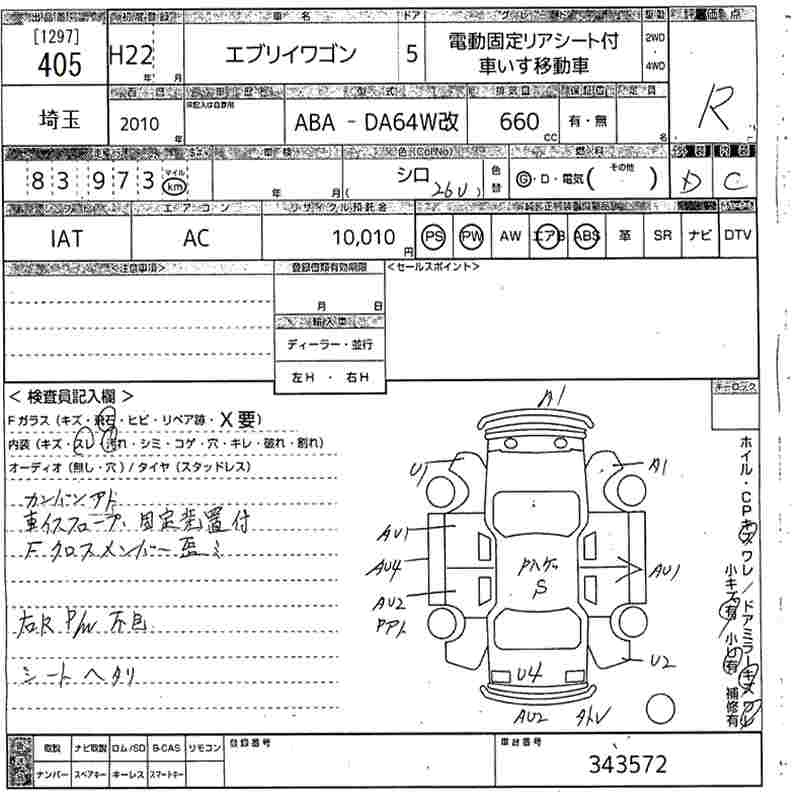 出品番号 初度登録 車名 ドア グレード 駆動 評価点
[1297]
405 H22 年 月 エブリイワゴン 5 電動固定リアシート付 車いす移動車 2WD・4WD R
会場 車歴 型式 排気量 保証書 定員
埼玉 2010 年 ABA - DA64W改 660 CC 有・無 名
車検 色(ColNo) 燃料 外装 内装
83,973 マイル km 年 月( シロ 26U) 色替 G・D・電気( その他 ) D C
シフト エアコン リサイクル預託金
IAT AC 10,010 円 PS PW AW エアB ABS 革 SR ナビ DTV
<注意事項> 登録書類有効期限 <セールスポイント>
月 日
輸入車
ディーラー・並行
左H ・ 右H
<検査員記入欄> キーロック
Fガラス(キズ・飛石・ヒビ・リペア跡・X要)
内装(キズ・スレ・汚れ・シミ・コゲ・穴・キレ・破れ・割れ)
オーディオ(無し・穴)/タイヤ(スタッドレス)
車イススロープ、固定装置付
Fクロスメンバー歪ミ
右R P/W 不良
シートヘタリ
A1
U1 A1
AU1
AU4 AU1
AU2
S
U4 U2
AU2
ホイル・CPキズワレ/ドアミラーキズワレ
小キズ有/小凹有 補修有
取説 ナビ取説 ロム/SD B-CAS リモコン 登録番号 車台番号
ナンバー スペアキー キーレス スマートキー 343572